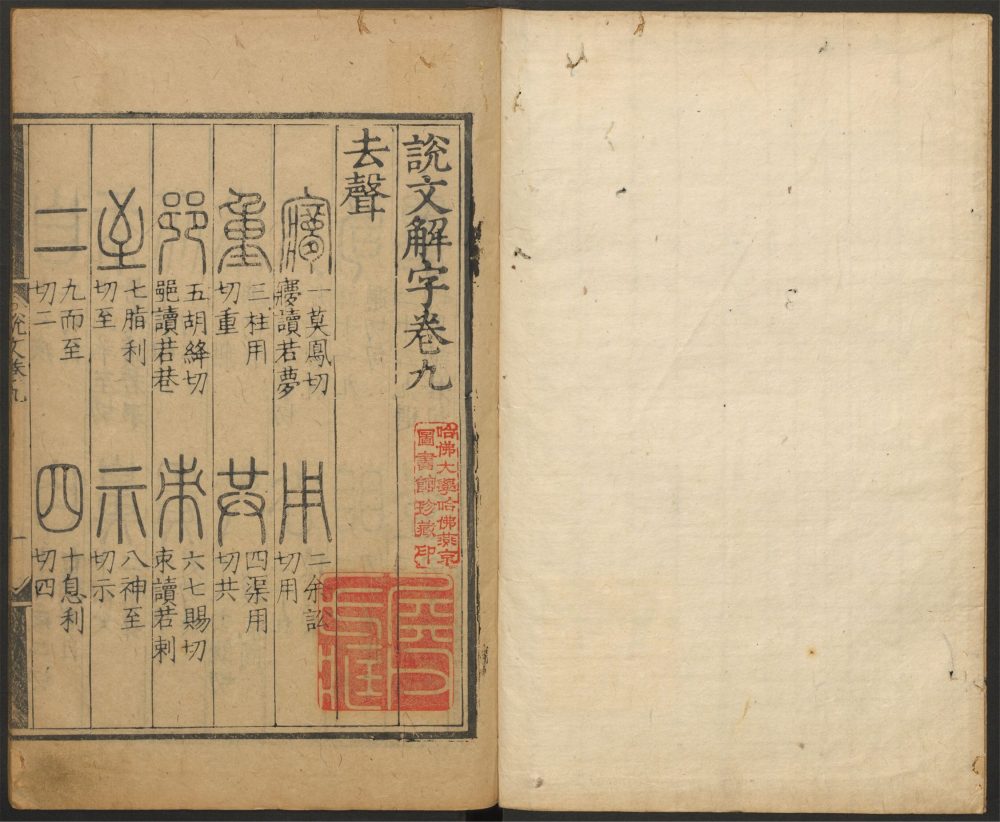 說文解字卷九
去聲
㝱
一莫鳳切
㝱讀若夢
用
二余訟
切用
重
三柱用
切重
共
四渠用
切共
五胡絳切
讀若巷
朿
六七賜切
朿讀若刺
至
七脂利
切至
示
八神至
切示
二
九而至
切二
四
十息利
切四
說文卷九
一
哈佛大學哈佛燕京
圖書館珍藏印